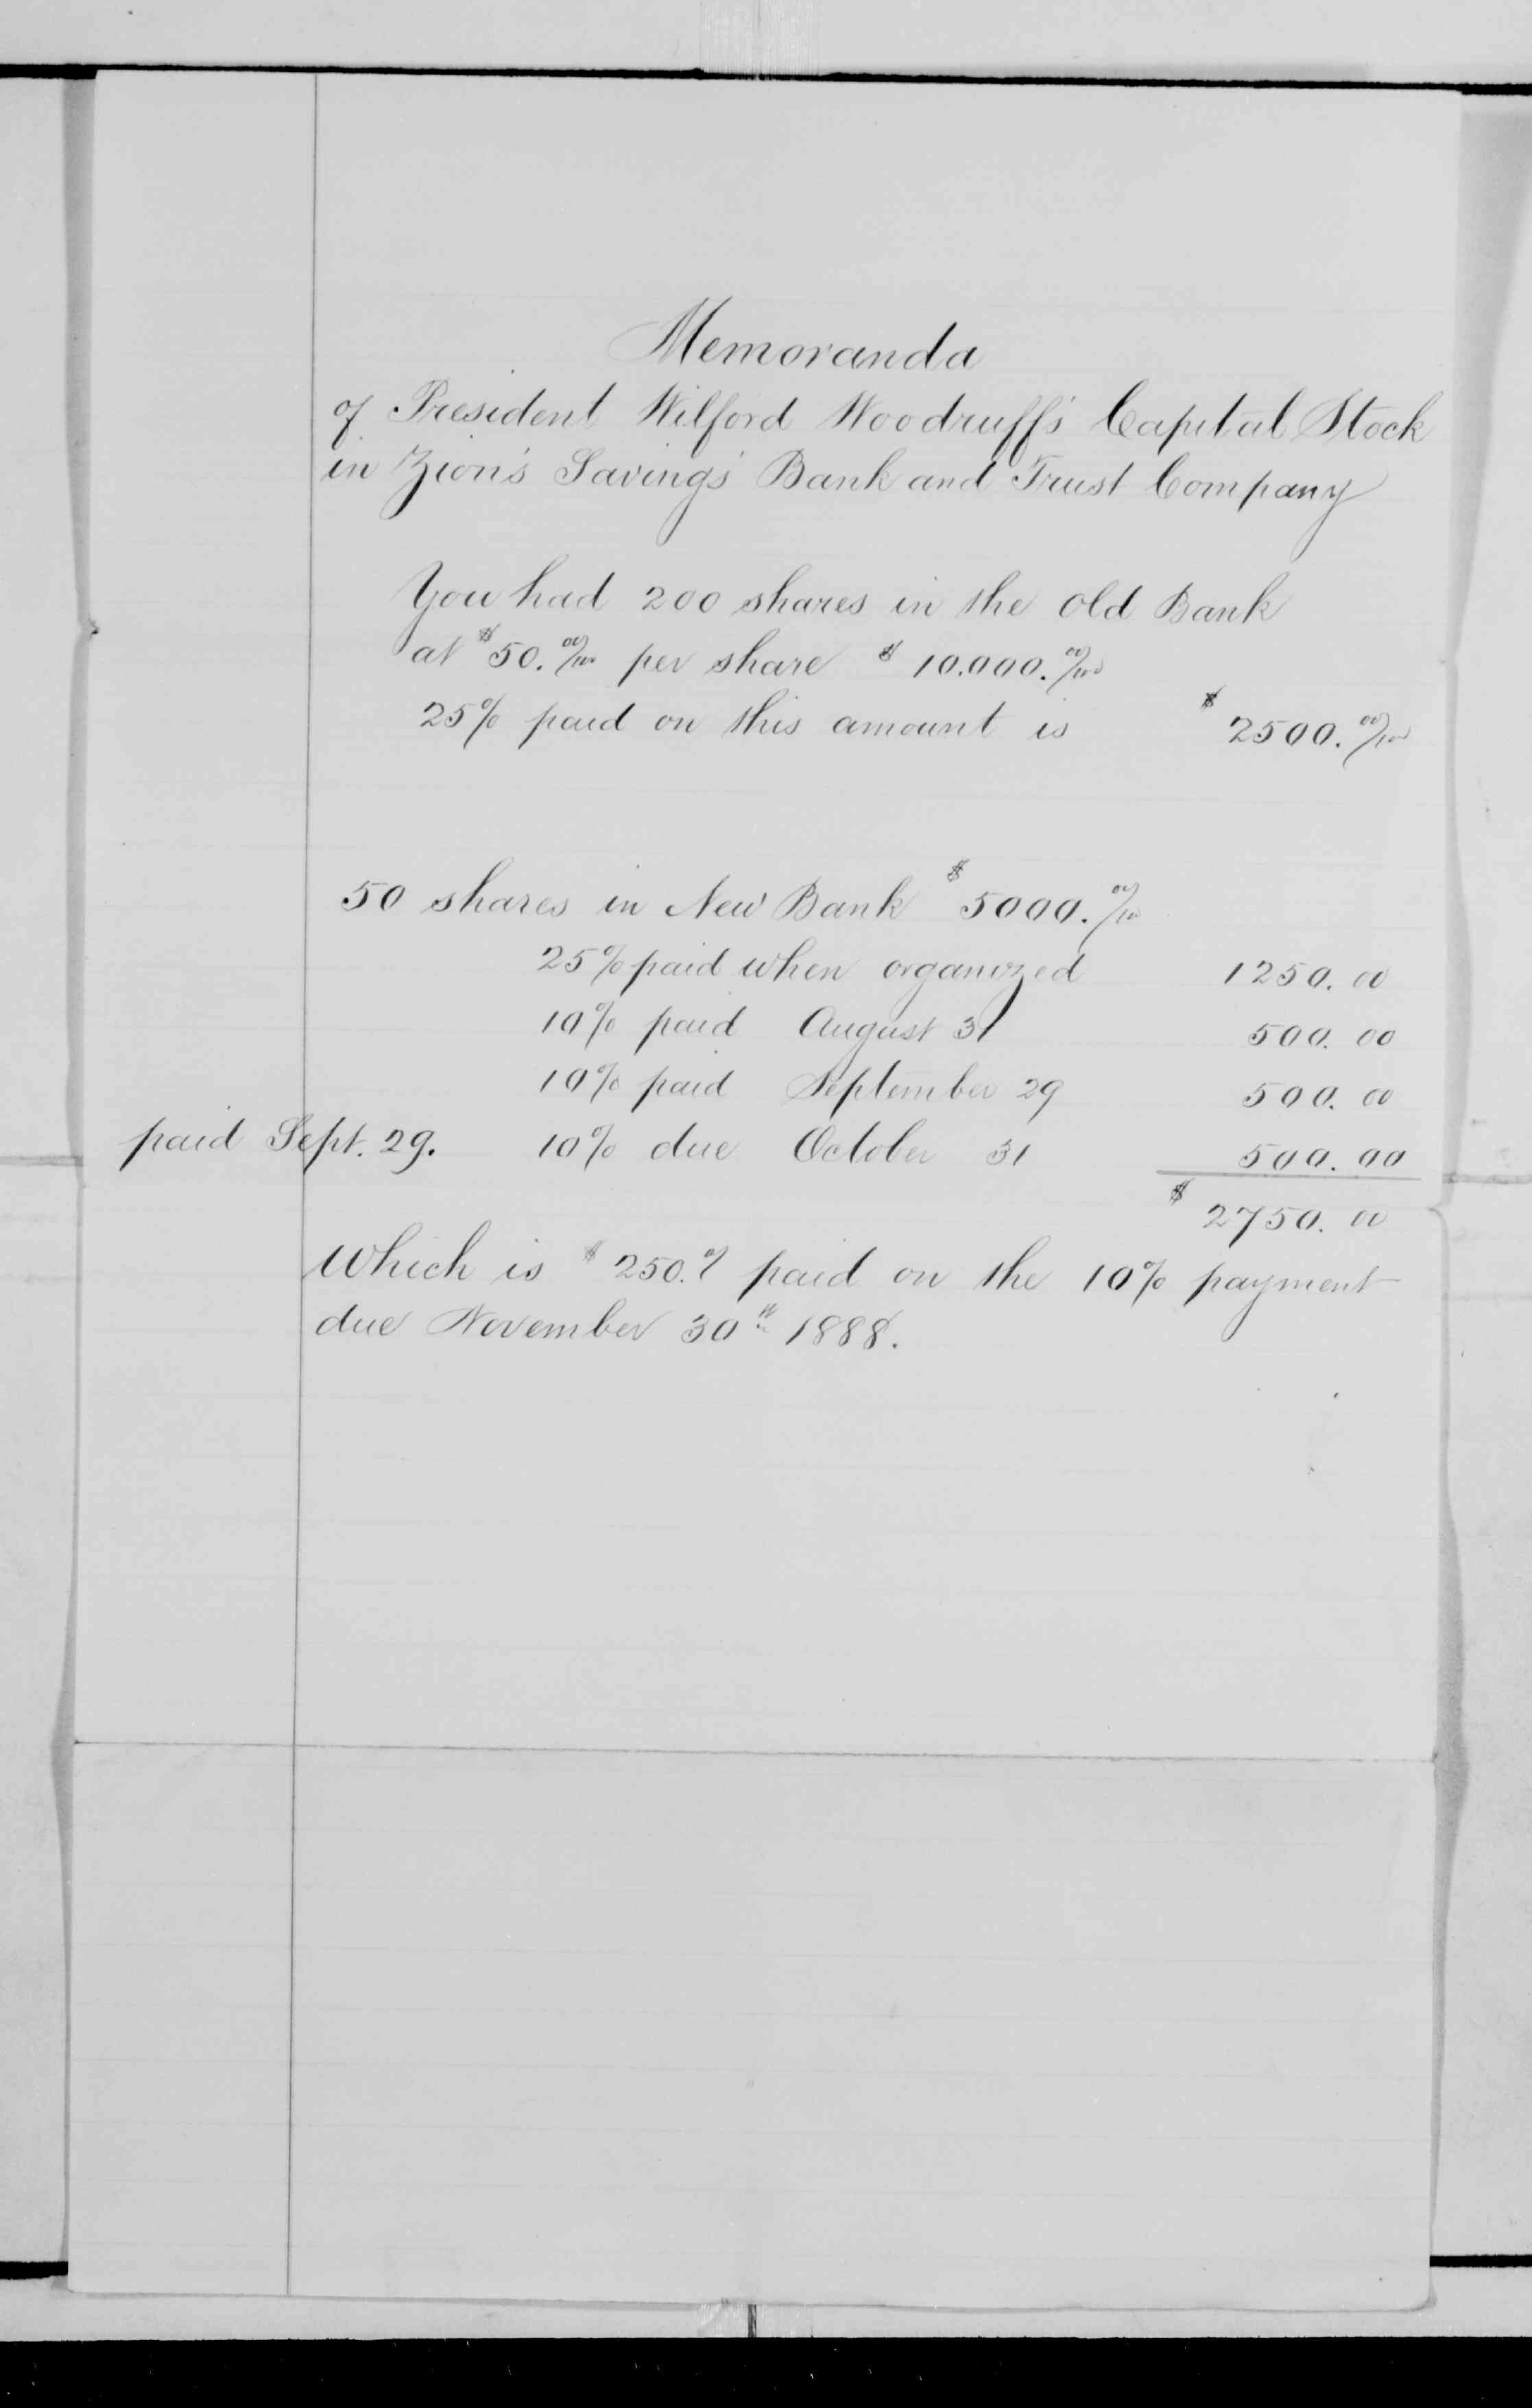 Memoranda
of President Wilford Woodruff's Capital Stock
in Zion's Savings Bank and Trust Company
You had 200 shares in the old Bank
at $50.00/100 per share $10.000.00/100
25% paid on this amount is $2500.00/100
50 shares in New Bank $5000.00/100
25% paid when organized 1250.00
10% paid August 31 500.00
10% paid September 29 500.00
paid Sept. 29. 10% due October 31 500.00
$2750.00
Which is $250.00 paid on the 10% payment
due November 30th 1888.